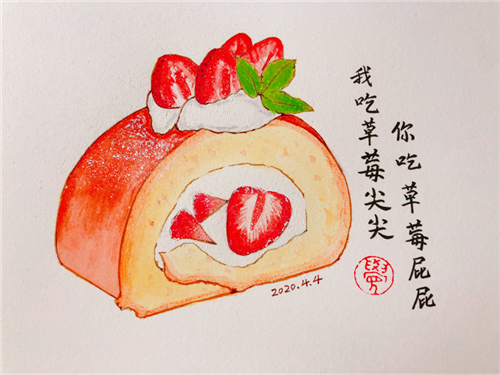 我吃草莓尖尖
你吃草莓屁屁
2020.4.4